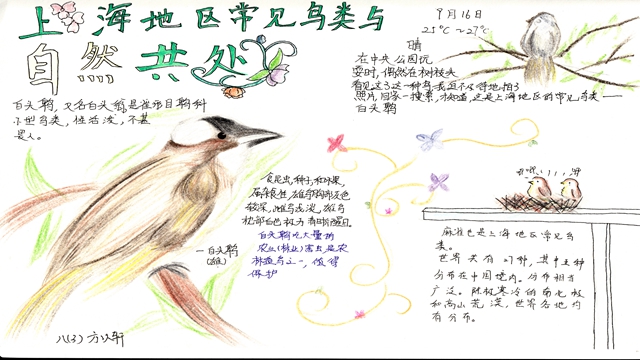 上海地区常见鸟类与
自然共处
9月16日
25℃~27℃
晴
在中央公园玩
耍时,偶然在树枝头
看见这么一种鸟,我迫不及待地拍了
照片,回家一搜索,才知道,这是上海地区的常见鸟类——
白头鹎
白头鹎,又名白头翁,是雀形目鹎科
小型鸟类,性活泼,不甚
畏人。
食昆虫、种子和水果,
属杂食性,雄鸟胸部灰色
较深,雌鸟浅淡,雄鸟
枕部白色极为清晰醒目
白头鹎吃大量的
农业(林业)害虫,是农
林益鸟之一,值得
保护
—白头鹎
(雄)
叽叽,,,,
麻雀也是上海地区常见鸟
类。
世界共有27种,其中五种
分布在中国境内。分布相当
广泛。除极寒冷的南北极
和高山荒漠,世界各地均
有分布。
八(3)方以轩